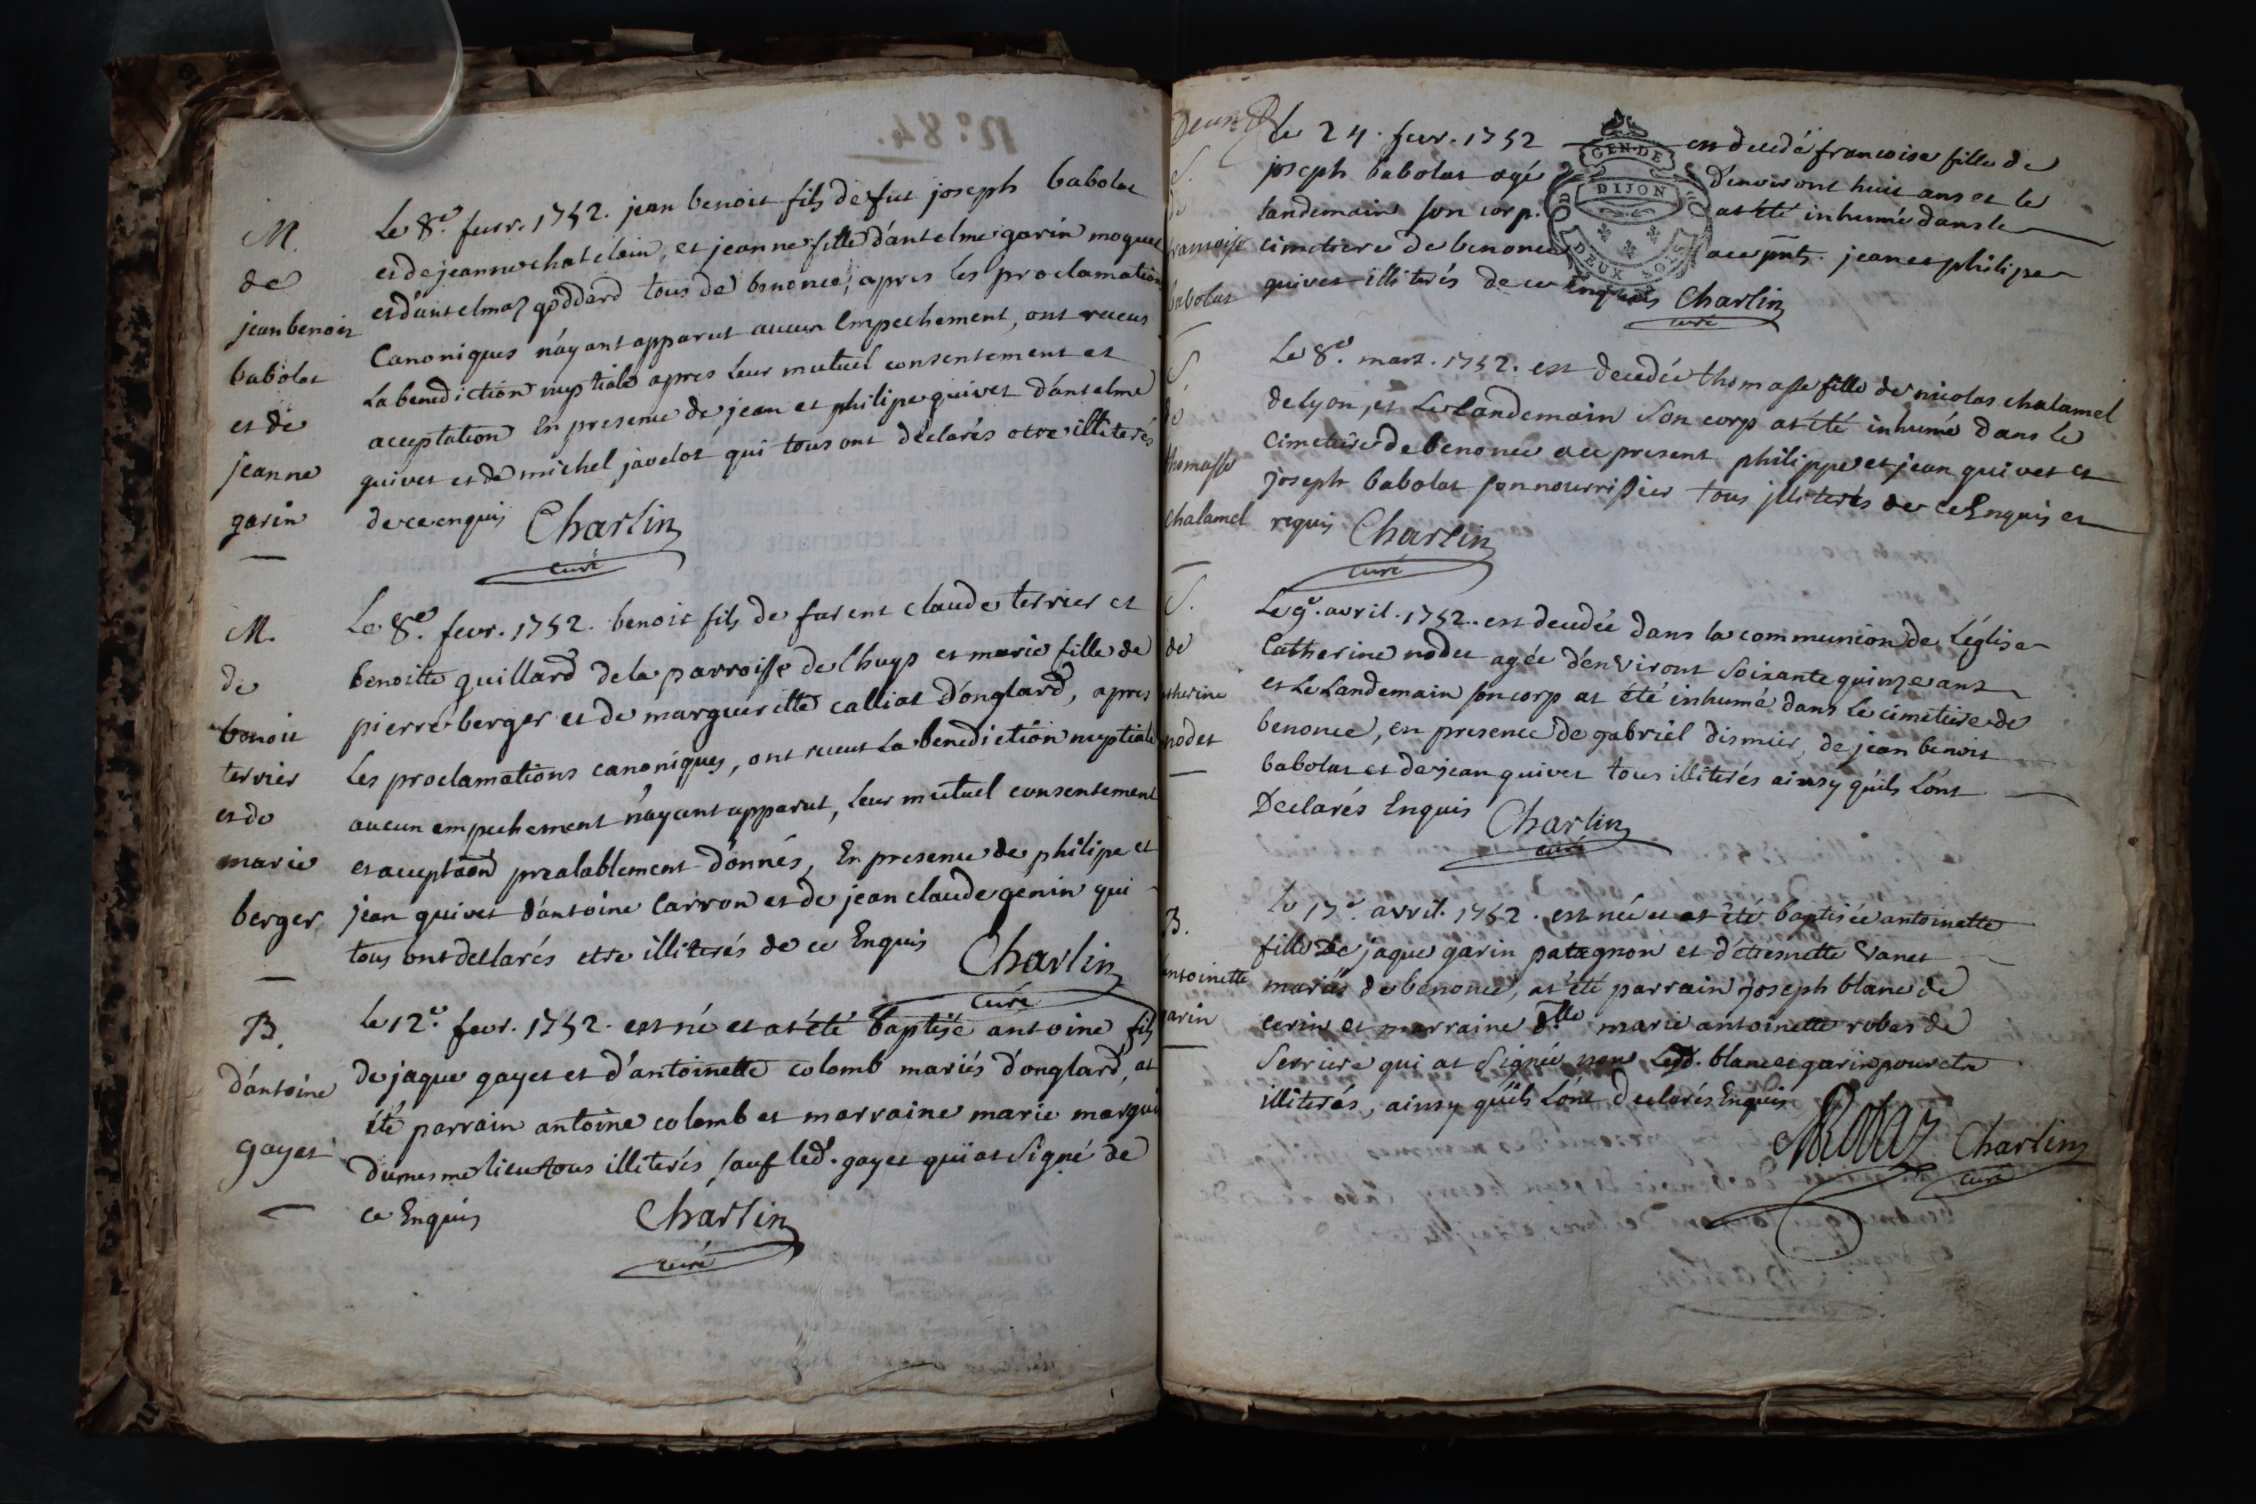 M.
de
jean benoit
babolat
et de
jeanne
garin
Le 8.e fevr. 1752. jean benoit fils de fut joseph babolat
et de jeanne chatelain, et jeanne fille d'antelme garin moquet
et d'antelmaz goddard tous de benonce, apres les proclamations
Canoniques n'ayant apparut aucun Empechement, ont receus
La benediction nuptiale apres Leur mutuel consentement et
acceptation En presence de jean et philipe quivet d'antelme
quivet et de michel javelot qui tous ont déclarés etre illiterés
de ce enquis Charlin
curé
M.
de
benoit
terrier
et de
marie
berger
Le 8.e fevr. 1752. benoit fils de furent claude terrier et
benoitte guillard de la parroisse de lhuys et marie fille de
pierre berger et de margueritte calliat d'onglard, apres
Les proclamations canoniques, ont receut La benediction nuptiale
aucun empechement n'ayant apparut, Leur mutuel consentement
et acceptaõn prealablement donnés, En presence de philipe et
jean quivet d'antoine Carron et de jean claude genin qui
tous ont dellarés etre illiterés de ce Enquis Charlin
curé
B.
d'antoine
gayet
Le 12.e fevr. 1752. est né et at été baptisé antoine fils
de jaque gayet et d'antoinette colomb mariés d'onglard, at
été parrain antoine colomb et marraine marie margui
du mesme lieu tous illiterés, sauf led. gayet qui at signé de
ce Enquis Charlin
curé
S.
de
francoise
babolat
Le 24. fevr. 1752 est decedé francoise fille de
joseph babolat agé d'environt huit ans et le
landemain son corp. at été inhumé dans le
cimetiere de benonce ace pnts. jean et philipe
quivet illiterés de ce enquis Charlin
curé
GEN. DE
DIJON
DEUX SOLS
S.
de
thomasse
chalamel
Le 8.e mars. 1752. est decedée thomasse fille de nicolas chalamel
de lyon, et Le Landemain Son corp at été inhumé dans le
Cimetiere de benonce ace present philippe et jean quivet et
joseph babolat son nourrissier tous illiterés de ce Enquis et
requis Charlin
curé
S.
de
catherine
nodet
Le 9.e avril. 1752. est decedée dans la communion de L'église
Catherine nodet agée d'environt soixante quinze ans
et Le Landemain son corp at été inhumé dans Le cimetiere de
benonce, en presence de gabriel dismier, de jean benoit
babolat et de jean quivet tous illiterés ainsy qu'ils L'ont
Declarés Enquis Charlin
curé
B.
antoinette
garin
Le 17.e avril. 1752. est née et at été baptisée antoinette
fille de jaque garin patagnon et d'étiennette vanet
mariés de benonce, at été parrain joseph blanc de
cerin et marraine d.lle marie antoinette robas de
Serriere qui at Signée non Lesd. blanc et garin pour etre
illiterés, ainsy qu'ils L'ont declarés Enquis
Charlin
curé